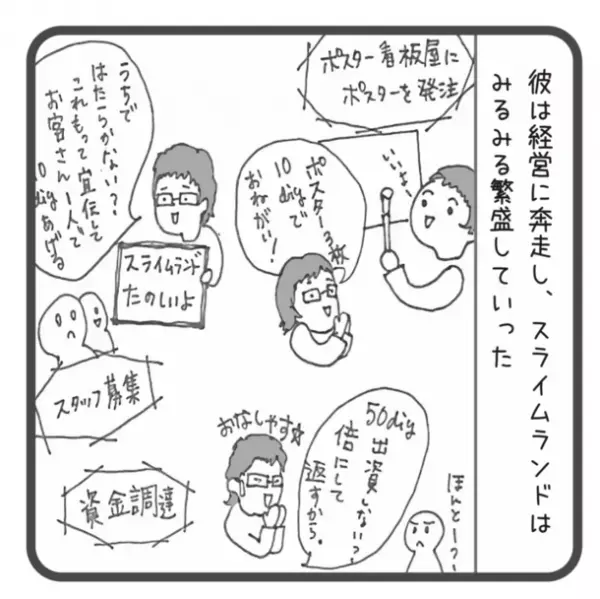 彼は経営に奔走し、スライムランドは
みるみる繁盛していった
ポスター看板屋に
ポスターを発注
いいよー
ポスター3枚
10digで
おねがい!
うちで
はたらかない?
これもって宣伝して
お宮さん1人で
10digあげる
スライムランド
たのしいよ
スタッフ募集
50dig
出資しない?
倍にして
返すから。
おなしゃす☆
ほんとー?
資金調達